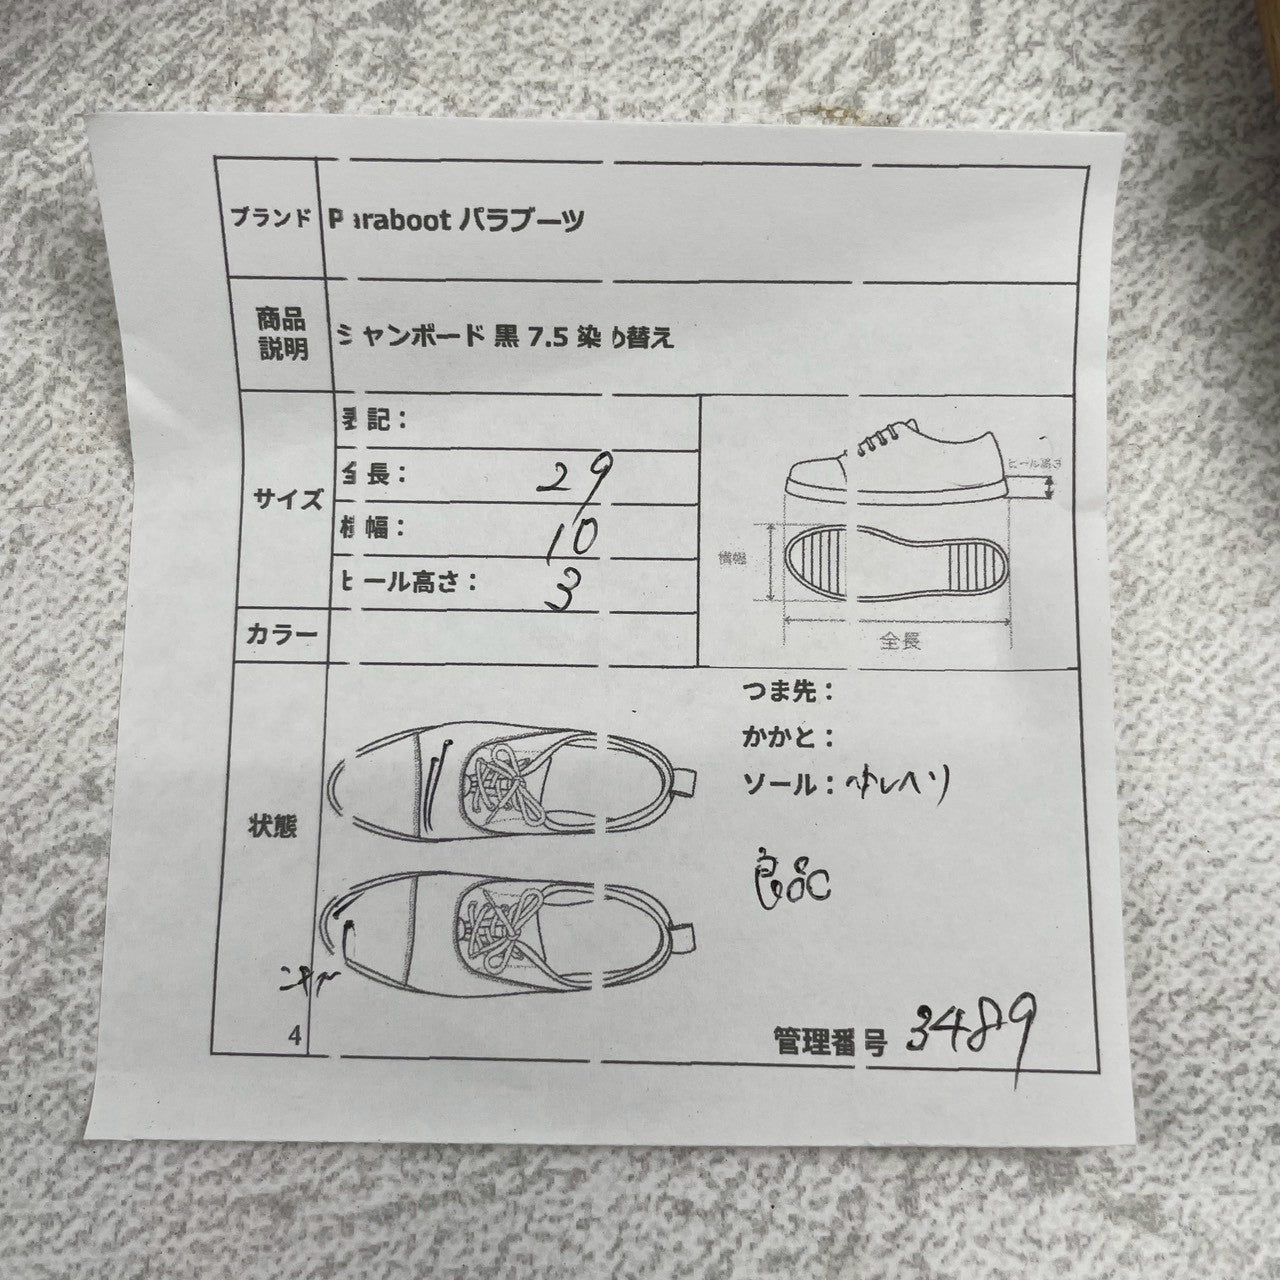 ブランド Paraboot パラブーツ
商品説明 シャンボード 黒 7.5 染め替え
サイズ
表記：
全長： 29
横幅： 10
ヒール高さ： 3
ヒール高さ
横幅
全長
カラー
状態
つま先：
かかと：
ソール：
良品
4
管理番号 3489